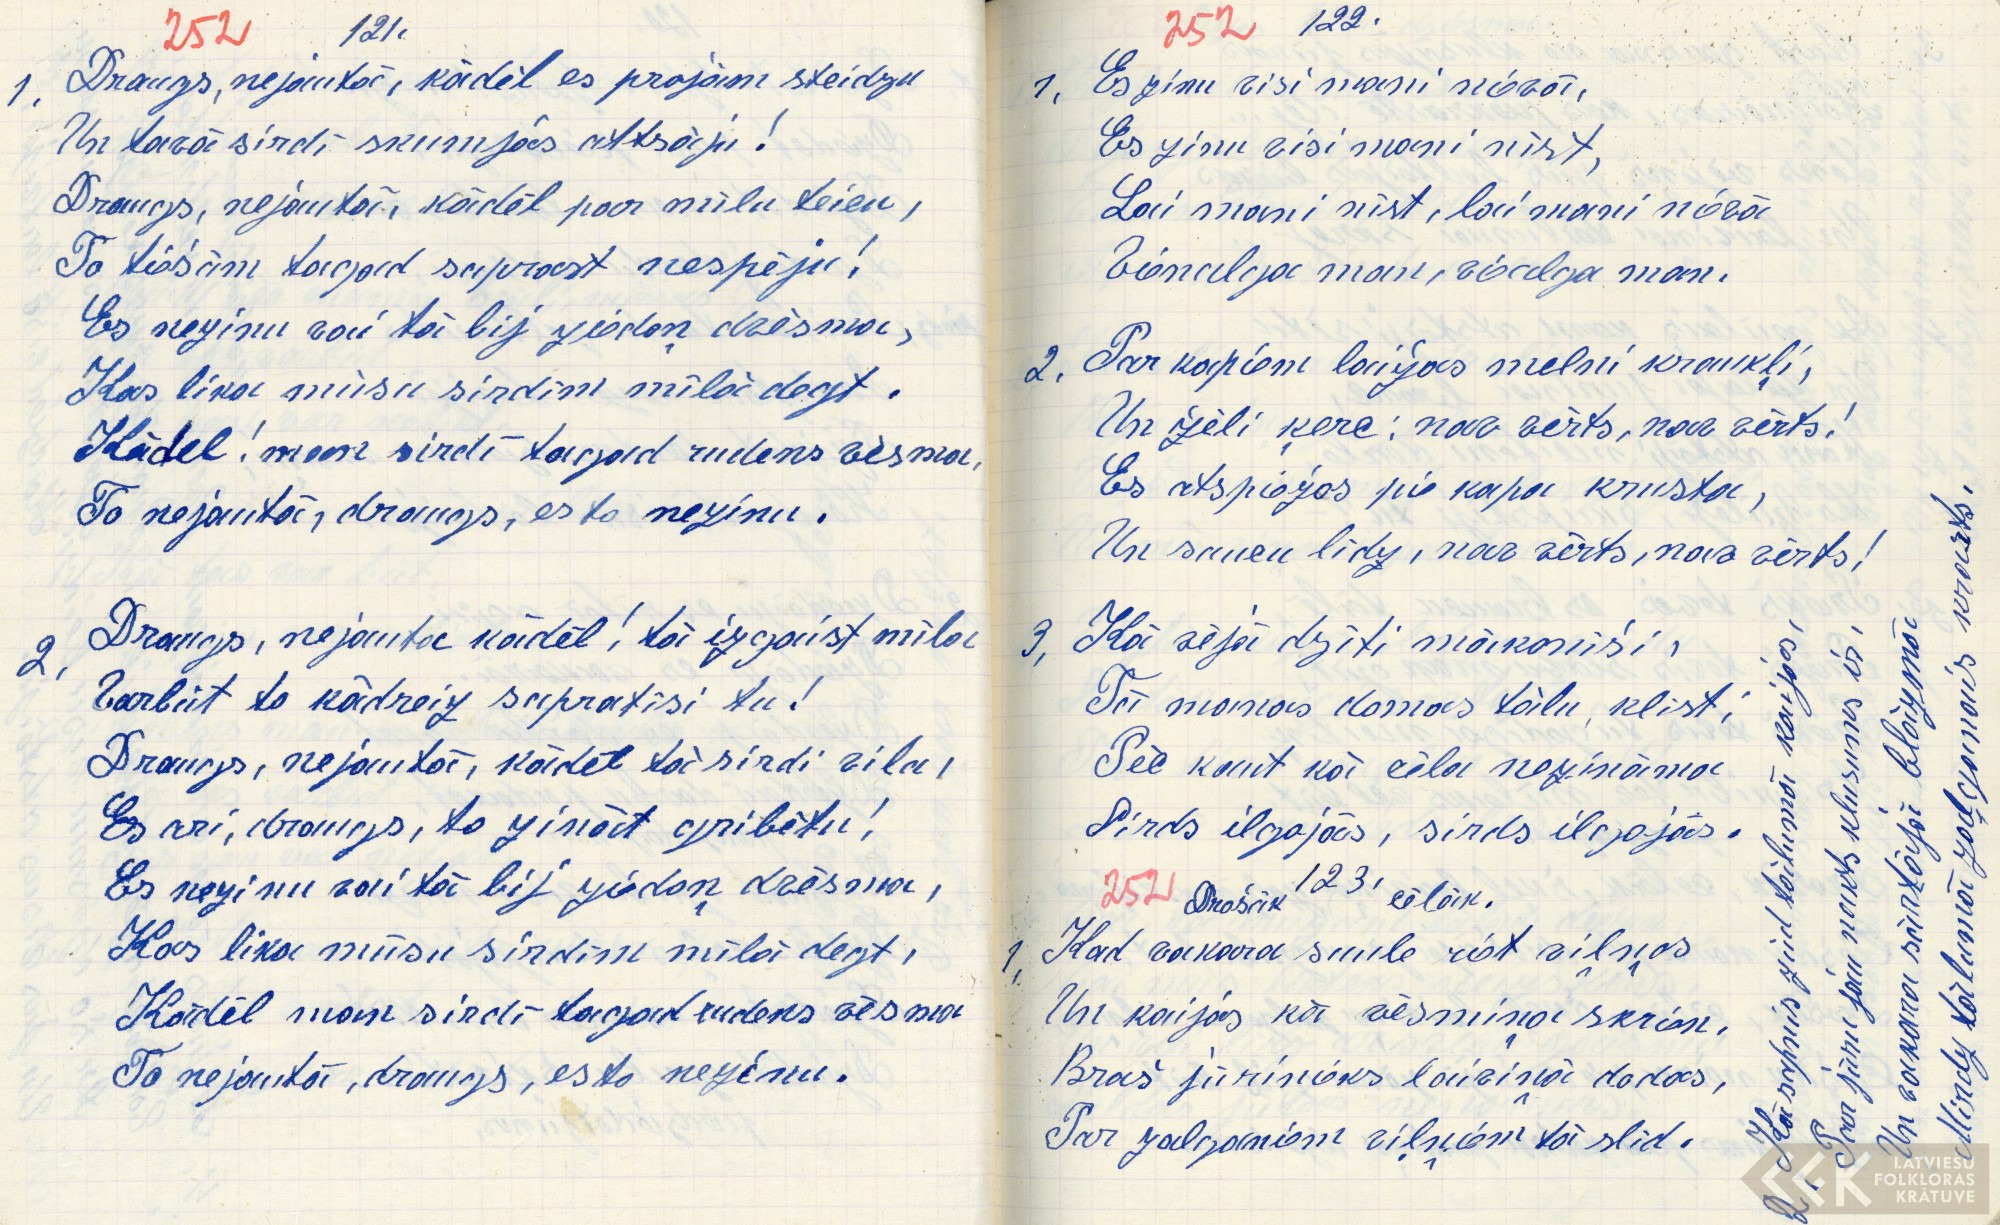 252 121.
1. Draugs, nejautā, kādēl es projām steidzu
Un tavā sirdī skumjās attsāju!
Draugs, nejautā, kādēl par mīlu teicu,
To tiešām tagad saprast nespēju!
Es nezinu vai tā bij ziedoņ dvēsma,
Kas lika mūsu sirdīm mīlā degt.
Kādel! man sirdī tagad rudens vēsma,
To nejautā, draugs, es to nezinu.
2. Draugs, nejauta kādēl! tā izgaist mīla
Varbūt to kādreiz sapratīsi tu!
Draugs, nejautā, kādēl tā sirdi vila,
Es arī, draugs, to zināt gribētu!
Es nezinu vai tā bij ziedoņ dvēsma,
Kas lika mūsu sirdīm mīlā degt,
Kādēl man sirdī tagad rudens vēsma
To nejautā, draugs, es to nezinu.
252 122.
1. Es zinu visi mani nievā,
Es zinu visi mani nīst,
Lai mani nīst, lai mani nievā
Vienalga man, vienalga man.
2. Par kapiem laižas melni kraukļi,
Un žēli ķerc: nav vērts, nav vērts!
Es atspiežos pie kapa krusta,
Un saucu līdz, nav vērts, nav vērts!
3. Kā vējā dzīti mākonīši,
Tā manas domas tālu klīst;
Pēc kaut kā cēla nezināma
Sirds ilgojās, sirds ilgojās.
252 123.
Drošāk cēlāk.
1. Kad vakara saule riet viļņos
Un kaijas kā vēsmiņa skrien,
Brašš jūrinieks laiviņā dodas,
Par zalganiem viļņiem tā slīd.
2. Kā sapnis zūd tālumā kaijas,
Par jūru jau nakts klusums iet,
Un vakara sārtojā blāzmā
Mirdz tālumā zaļganais krasts.
LATVIEŠU
FOLKLORAS
KRĀTUVE